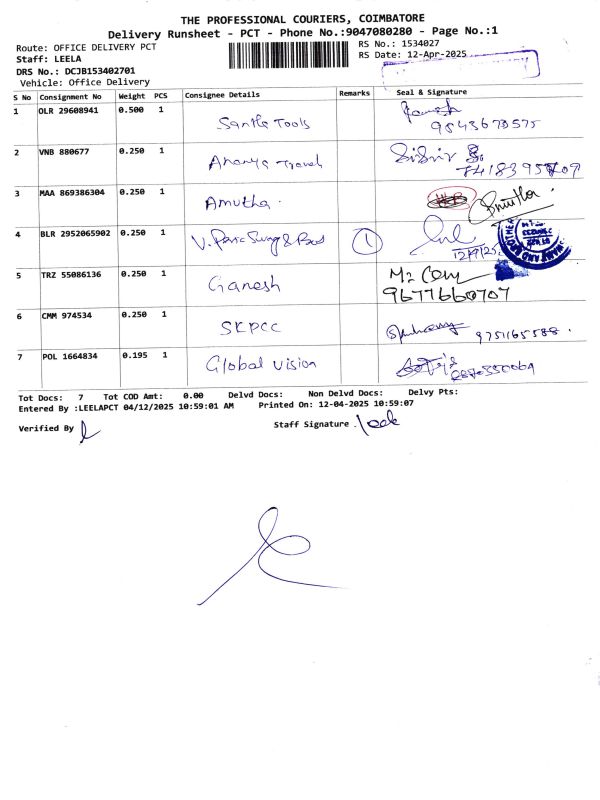 THE PROFESSIONAL COURIERS, COIMBATORE
Delivery Runsheet - PCT - Phone No.:9047080280 - Page No.:1
Route: OFFICE DELIVERY PCT
RS No.: 1534027
Staff: LEELA
RS Date: 12-Apr-2025
DRS No.: DCJB153402701
Vehicle: Office Delivery
S No Consignment No Weight PCS Consignee Details Remarks Seal & Signature
1 OLR 29608941 0.500 1 Santhe Tools
9843673575
2 VNB 880677 0.250 1 Ananya Travels
3 MAA 869386304 0.250 1 Amutha.
4 BLR 2952065902 0.250 1 1
5 TRZ 55086136 0.250 1 Ganesh
9677660707
6 CMM 974534 0.250 1 SKPCC
9751165588.
7 POL 1664834 0.195 1 Global Vision
Tot Docs: 7 Tot COD Amt: 0.00 Delvd Docs: Non Delvd Docs: Delvy Pts:
Entered By :LEELAPCT 04/12/2025 10:59:01 AM Printed On: 12-04-2025 10:59:07
Verified By
Staff Signature